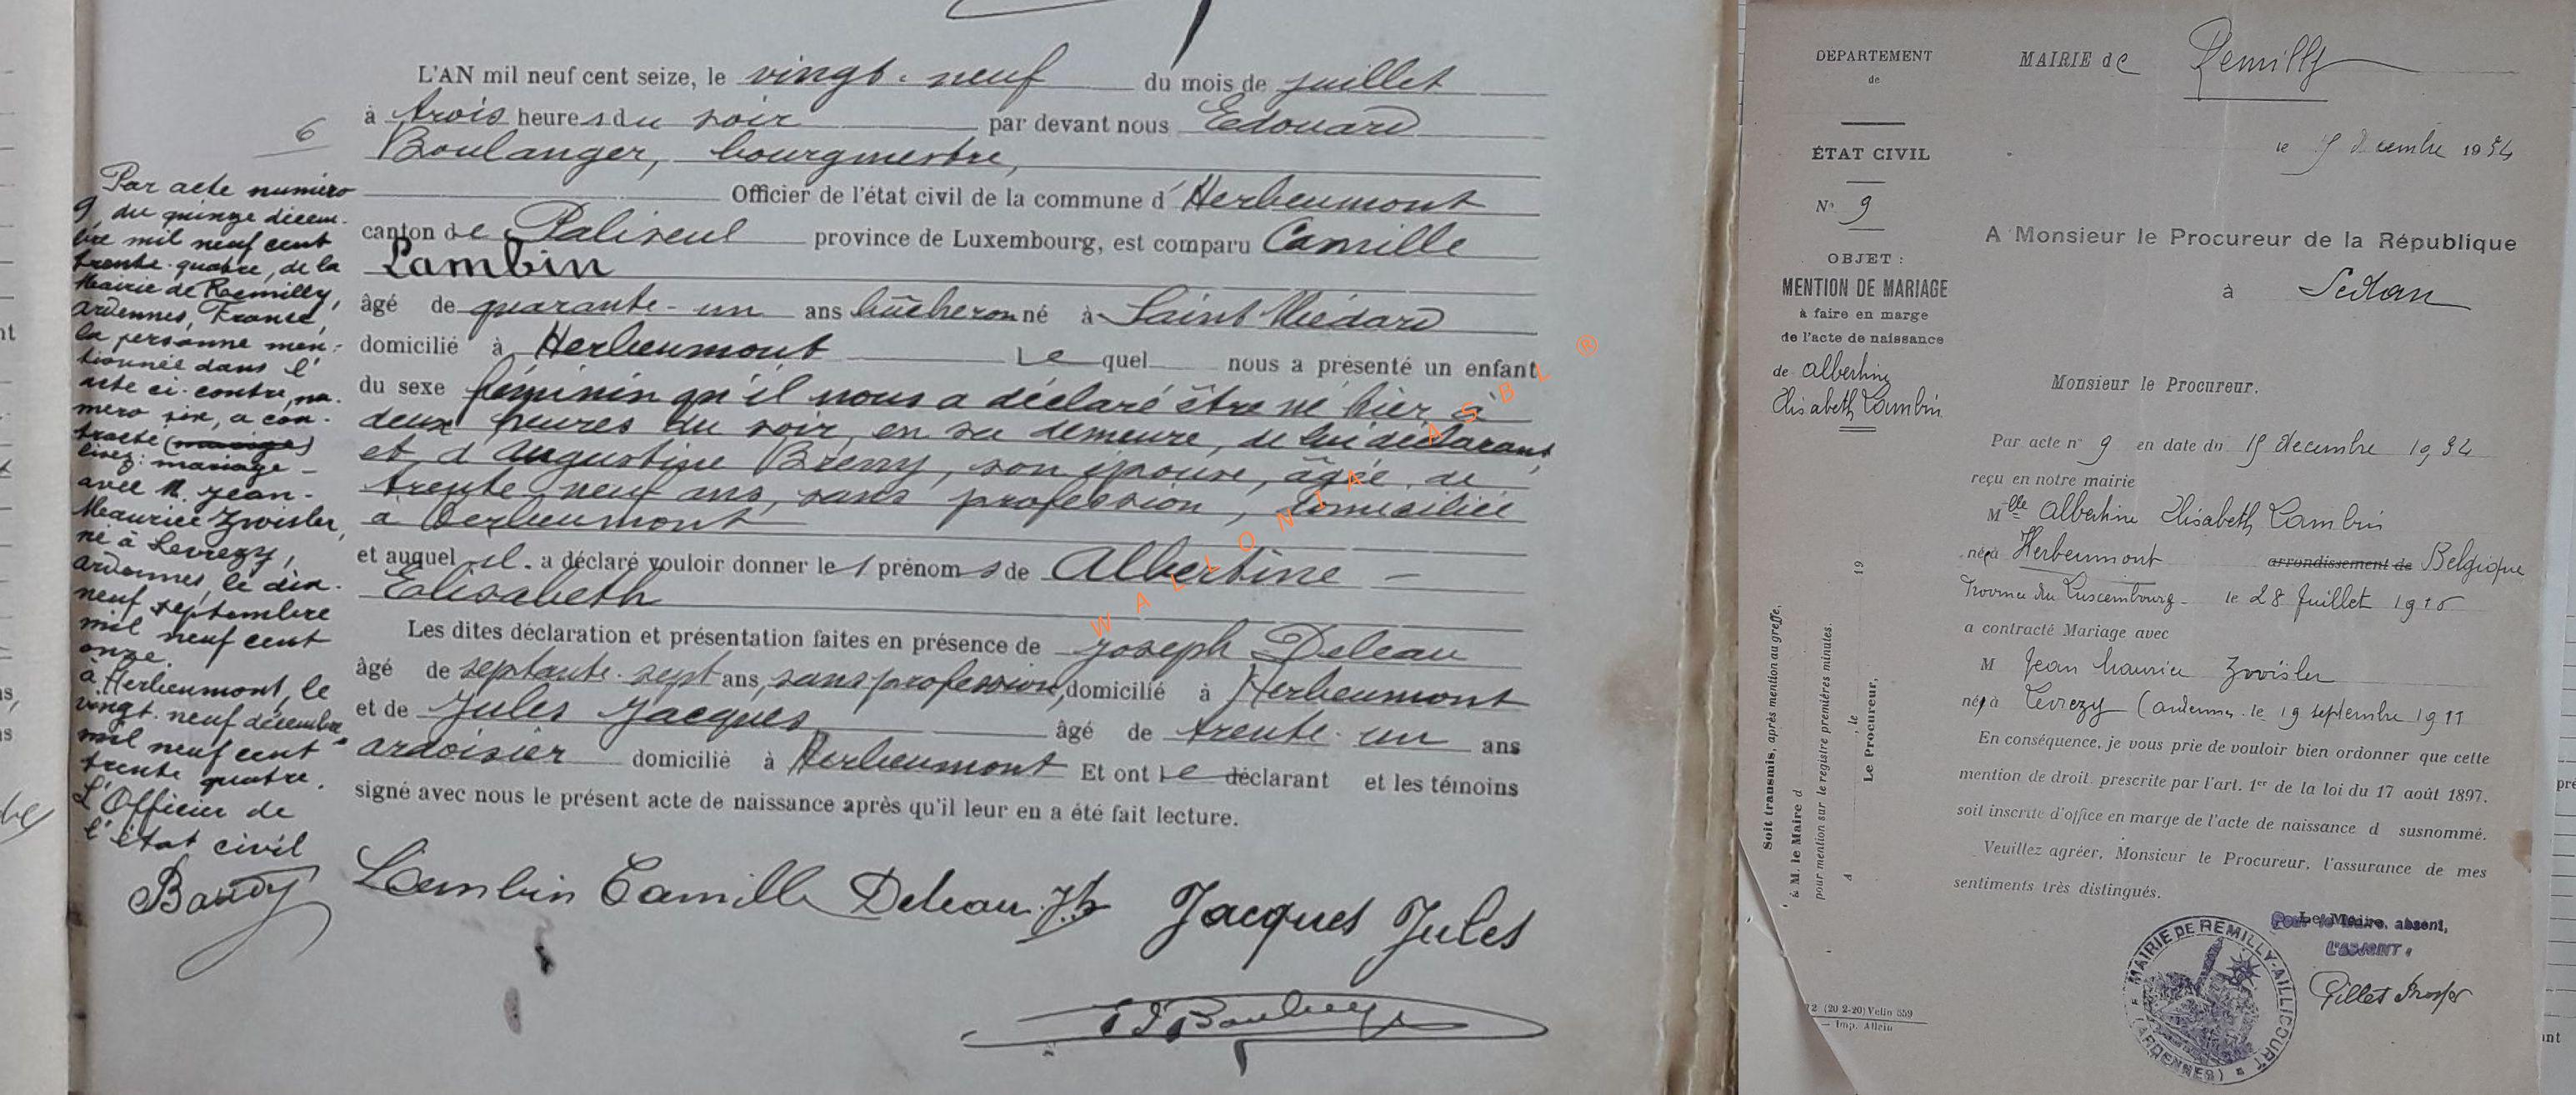 L'AN mil neuf cent seize, le vingt-neuf du mois de juillet
à trois heures du soir par devant nous Edouard
Boulanger, bourgmestre,
Officier de l'état civil de la commune d'Herbeumont
canton de Paliseul province de Luxembourg, est comparu Camille
Lambin
âgé de quarante-un ans bûcheron né à Saint Médard
domicilié à Herbeumont Lequel nous a présenté un enfant
du sexe féminin qu'il nous a déclaré être né hier à
deux heures du soir, en sa demeure, de lui déclarant
et d'Augustine Bremy, son épouse, âgée de
trente-neuf ans, sans profession, domiciliée
à Herbeumont
et auquel il a déclaré vouloir donner les prénoms de Albertine -
Elisabeth
Les dites déclaration et présentation faites en présence de Joseph Deleau
âgé de septante-sept ans, sans profession, domicilié à Herbeumont
et de Jules Jacques âgé de trente-un ans
ardoisier domicilié à Herbeumont Et ont le déclarant et les témoins
signé avec nous le présent acte de naissance après qu'il leur en a été fait lecture.
Lambin Camille Deleau Jh Jacques Jules
Ed Boulanger
6
Par acte numéro
9 du quinze décem-
bre mil neuf cent
trente-quatre, de la
Mairie de Remilly,
Ardennes, France,
la personne men-
tionnée dans l'
acte ci-contre, nu-
méro six, a con-
tracté (mariage)
lisez: mariage -
avec M. Jean-
Maurice Zwisler,
né à Levrezy,
Ardennes, le dix-
neuf septembre
mil neuf cent
onze.
à Herbeumont, le
vingt-neuf décembre
mil neuf cent
trente quatre.
L'Officier de
l'état civil
Baudy
WALLONIA ASBL ®
DEPARTEMENT
de
ÉTAT CIVIL
N° 9
OBJET :
MENTION DE MARIAGE
à faire en marge
de l'acte de naissance
de Albertine
Elisabeth Lambin
MAIRIE de Remilly
le 15 décembre 1934
A Monsieur le Procureur de la République
à Sedan
Monsieur le Procureur.
Par acte n° 9 en date du 15 décembre 1934
reçu en notre mairie
Mlle Albertine Elisabeth Lambin
née à Herbeumont arrondissement de Belgique
Province du Luxembourg - le 28 Juillet 1916
a contracté Mariage avec
M Jean Maurice Zwisler
né à Levrezy (Ardennes. le 19 septembre 1911
En conséquence, je vous prie de vouloir bien ordonner que cette
mention de droit, prescrite par l'art. 1er de la loi du 17 août 1897,
soit inscrite d'office en marge de l'acte de naissance d susnommé.
Veuillez agréer, Monsieur le Procureur, l'assurance de mes
sentiments très distingués.
Le Maire,
Pour le Maire, absent,
L'ADJOINT :
Gillet Prosper
MAIRIE DE REMILLY-AILLICOURT
(ARDENNES)
Soit transmis, après mention au greffe,
à M. le Maire d
pour mention sur le registre premières minutes.
A , le 19
Le Procureur,
2 (20-2-20) Velin 559
— Imp. Allein